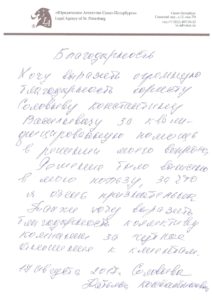 «Юридическое Агентство Санкт-Петербурга»
Legal Agency of St. Petersburg
Благодарность
Хочу выразить огромную
благодарность юристу
Соловьеву Константину
Васильевичу за квали-
фицированную помощь
в решении моего вопроса.
Решение было вынесено
в мою пользу за что
я очень признательна.
Также хочу выразить
благодарность коллективу
компании за чуткое
отношение к клиентам.
Татьяна